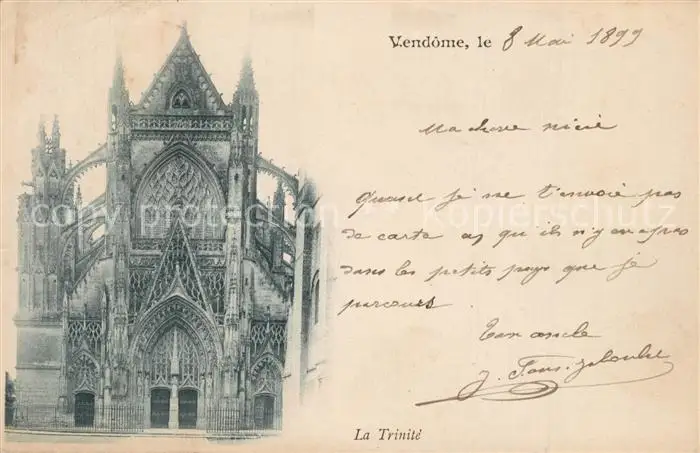 Vendôme, le 8 Mai 1899
Ma chere nièce
Quand je ne t'envoie pas
de carte c'est qu'il n'y en a pas
dans les petits pays que je
parcours
Ton oncle
J.
La Trinité
COPY protected
Kopierschutz